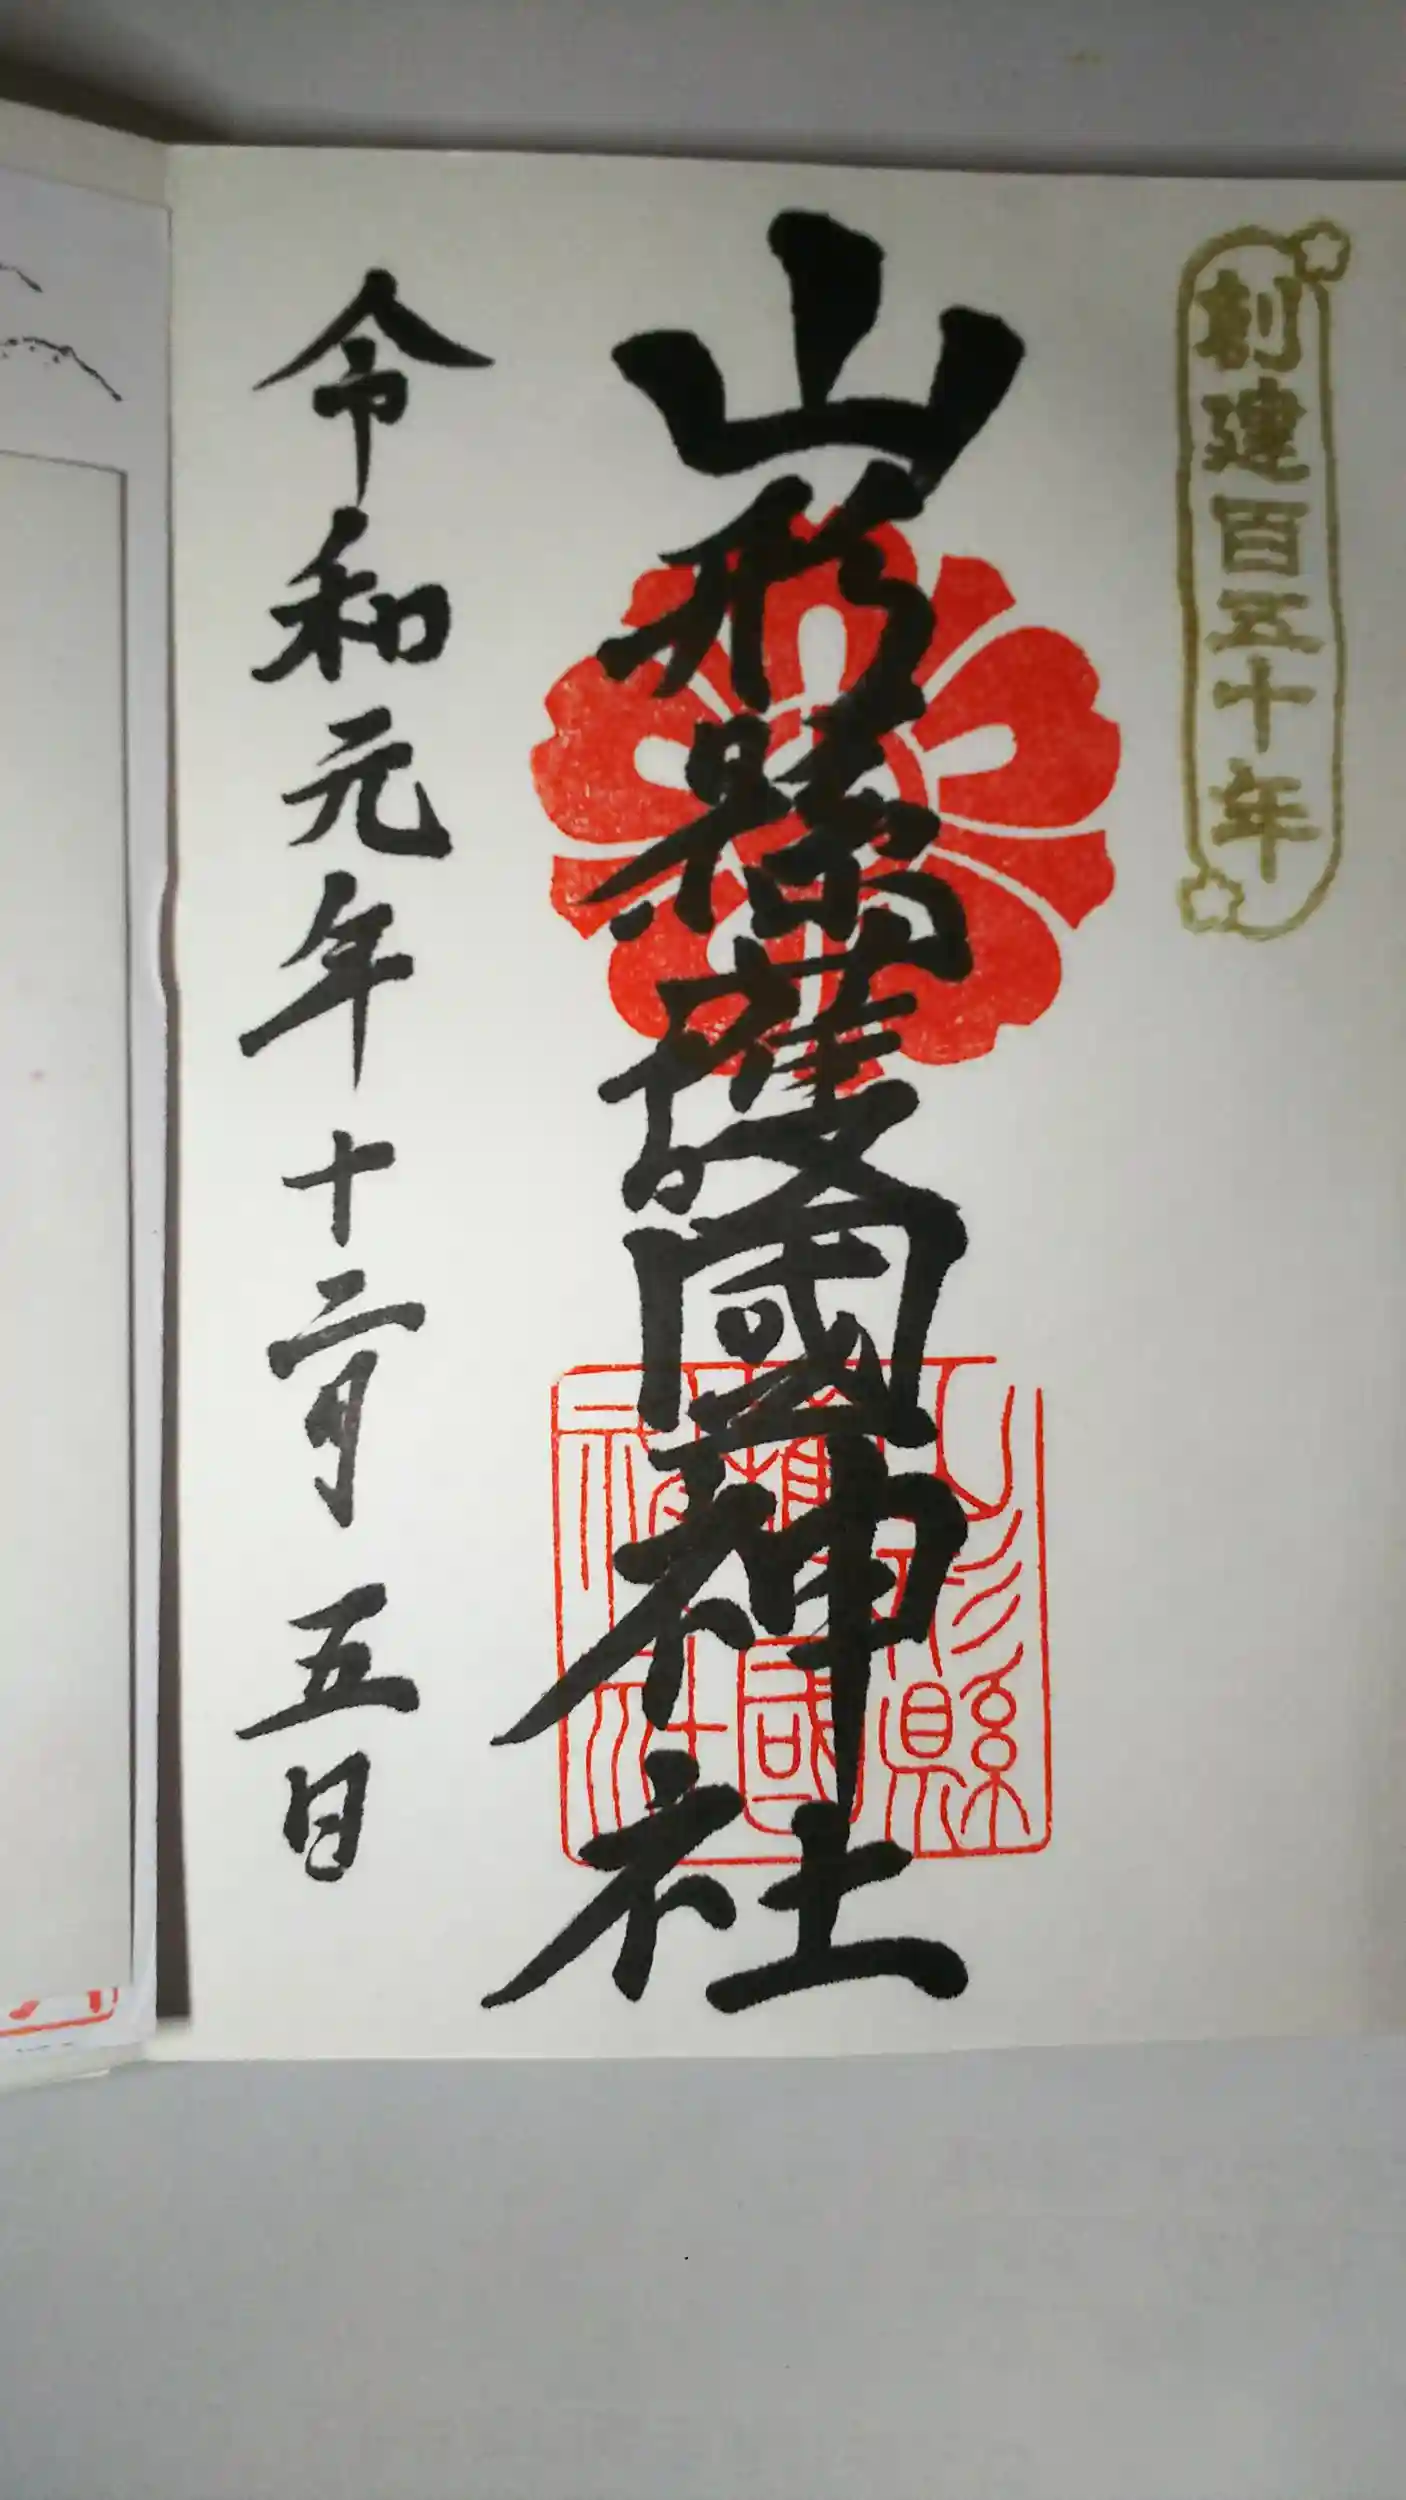 創建百五十年
山形縣護國神社
山形縣護國神社
令和元年十二月五日